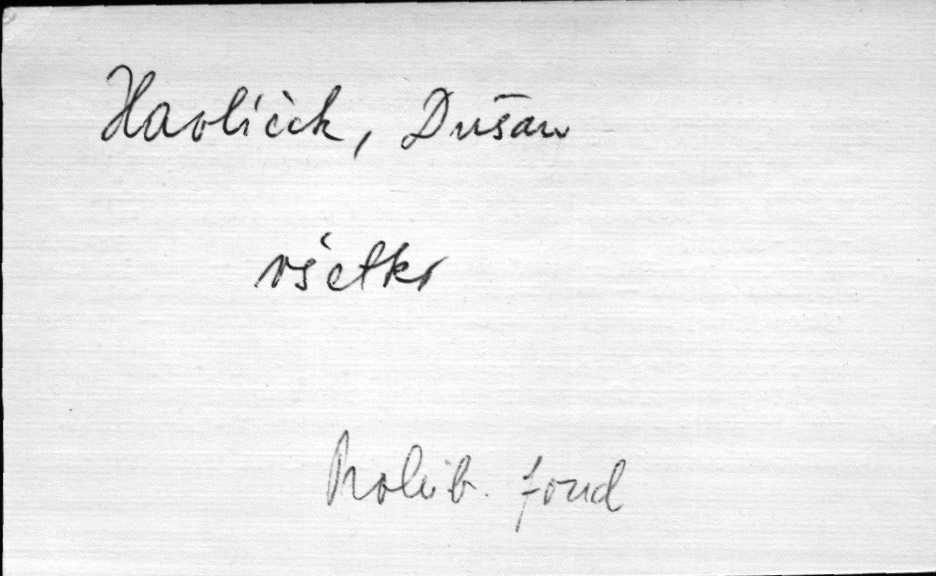 Havlíček, Dušan
všetko
Prohib. fond